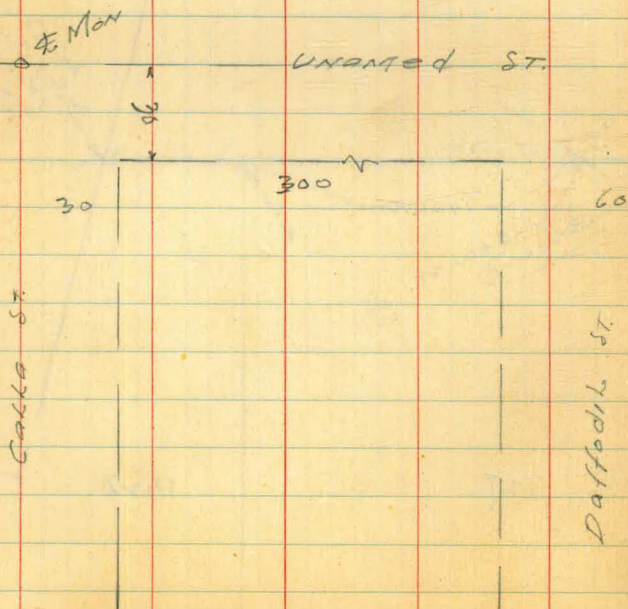 ℄ Mon
Unamed St.
300
30
60
Calla St.
Daffodil St.